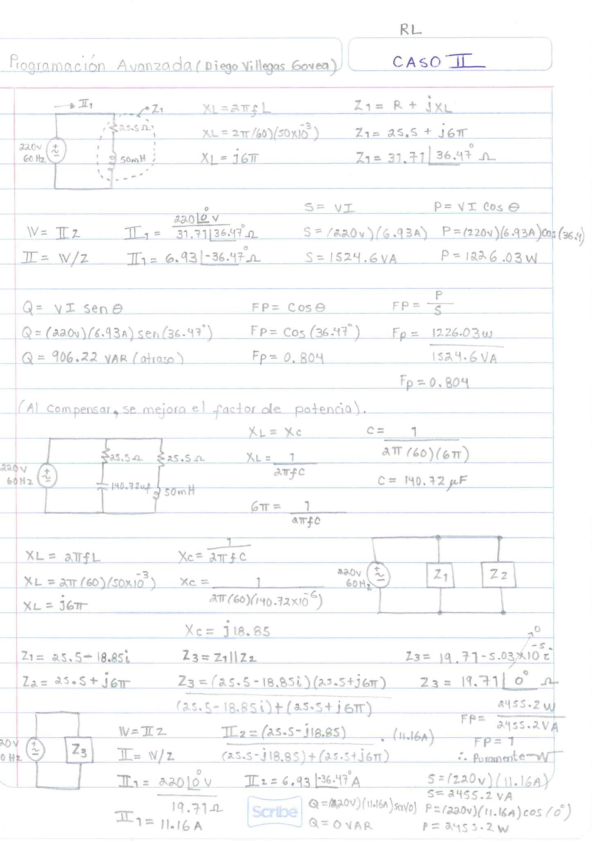 RL
Programación Avanzada (Diego Villegas Govea)
CASO II
→ II₁
Z₁
220v
60 Hz
25.5Ω
50mH
XL = 2πfL
XL = 2π(60)(50x10⁻³)
XL = j6π
Z₁ = R + jXL
Z₁ = 25.5 + j6π
Z₁ = 31.71∠36.47° Ω
V = II Z
II = V/Z
II₁ = 220∠0° V / 31.71∠36.47° Ω
II₁ = 6.93∠-36.47° Ω
S = VI
S = (220v)(6.93A)
S = 1524.6 VA
P = VI cos θ
P = (220v)(6.93A)cos(36.4)
P = 1226.03 W
Q = VI sen θ
Q = (220v)(6.93A) sen(36.47°)
Q = 906.22 VAR (atraso)
FP = Cos θ
FP = Cos(36.47°)
Fp = 0.804
FP = P / S
Fp = 1226.03w / 1524.6 VA
Fp = 0.804
(Al compensar, se mejora el factor de potencia).
220v
60Hz
25.5Ω
25.5Ω
140.72uf
50mH
XL = Xc
XL = 1 / 2πfC
6π = 1 / 2πfC
C = 1 / 2π(60)(6π)
C = 140.72 μF
XL = 2πfL
XL = 2π(60)(50x10⁻³)
XL = j6π
Xc = 1 / 2πfC
Xc = 1 / 2π(60)(140.72x10⁻⁶)
Xc = j18.85
220v
60Hz
Z₁
Z₂
Z₁ = 25.5 - 18.85i
Z₂ = 25.5 + j6π
Z₃ = Z₁||Z₂
Z₃ = (25.5-18.85i)(25.5+j6π) / (25.5-18.85i)+(25.5+j6π)
Z₃ = 19.71-5.03x10⁻⁵i
0
Z₃ = 19.71∠0° Ω
20v
0Hz
Z₃
V = II Z
II = V/Z
II₁ = 220∠0° V / 19.71Ω
II₁ = 11.16A
II₂ = (25.5-j18.85) / (25.5-j18.85)+(25.5+j6π) · (11.16A)
II₂ = 6.93∠-36.47° A
FP = 2455.2W / 2455.2VA
FP = 1
∴ Puramente W
S = (220v)(11.16A)
S = 2455.2 VA
Scribe
Q = (220v)(11.16A)sen(0)
Q = 0 VAR
P = (220v)(11.16A)cos(0°)
P = 2455.2W